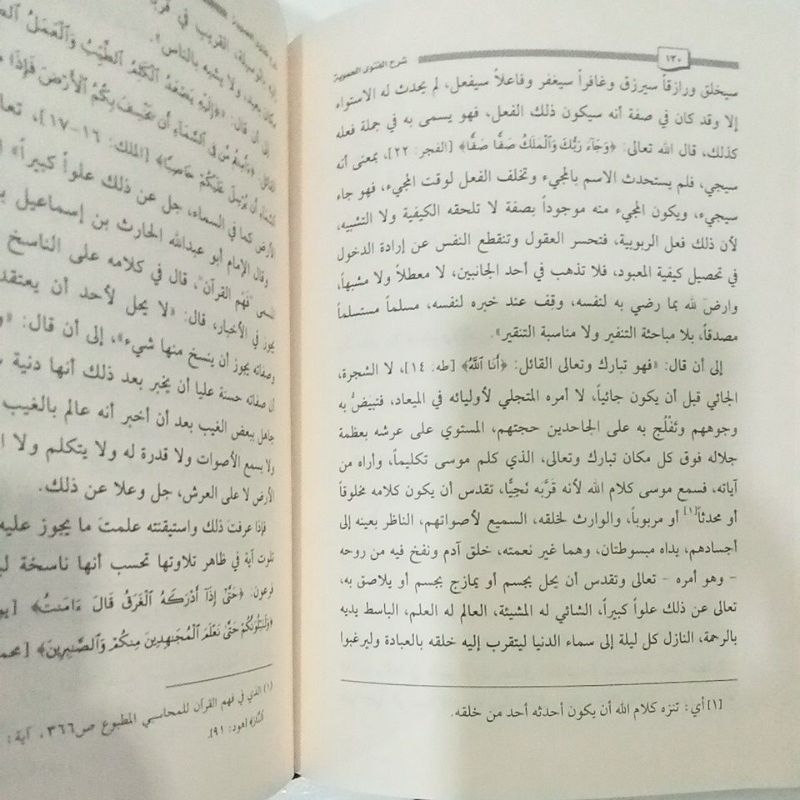 ١٣٠
شرح الفتوى الحموية
سيخلق ورازقاً سيرزق وغافراً سيغفر وفاعلاً سيفعل، لم يحدث له الاستواء
إلا وقد كان في صفة أنه سيكون ذلك الفعل، فهو يسمى به في جملة فعله
كذلك، قال الله تعالى: ﴿وَجَآءَ رَبُّكَ وَٱلْمَلَكُ صَفًّا صَفًّا﴾ [الفجر: ٢٢]، بمعنى أنه
سيجي، فلم يستحدث الاسم بالمجيء وتخلف الفعل لوقت المجيء، فهو جاء
سيجيء، ويكون المجيء منه موجوداً بصفة لا تلحقه الكيفية ولا التشبيه،
لأن ذلك فعل الربوبية، فتحسر العقول وتنقطع النفس عن إرادة الدخول
في تحصيل كيفية المعبود، فلا تذهب في أحد الجانبين، لا معطلاً ولا مشبهاً،
وارضَ لله بما رضي به لنفسه، وقِف عند خبره لنفسه، مسلماً مستسلماً
مصدقاً، بلا مباحثة التنفير ولا مناسبة التنقير».
إلى أن قال: «فهو تبارك وتعالى القائل: ﴿أَنَا ٱللَّهُ﴾ [طه: ١٤]، لا الشجرة،
الجائي قبل أن يكون جائياً، لا أمره المتجلي لأوليائه في الميعاد، فتبيَضُّ به
وجوههم وتَفْلُج به على الجاحدين حجتهم، المستوي على عرشه بعظمة
جلاله فوق كل مكان تبارك وتعالى، الذي كلم موسى تكليماً، وأراه من
آياته، فسمع موسى كلام الله لأنه قرَّبه نَجِيًّا، تقدس أن يكون كلامه مخلوقاً
أو محدثاً[١] أو مربوباً، والوارث لخلقه، السميع لأصواتهم، الناظر بعينه إلى
أجسادهم، يداه مبسوطتان، وهما غير نعمته، خلق آدم ونفخ فيه من روحه
- وهو أمره - تعالى وتقدس أن يحل بجسم أو يمازج بجسم أو يلاصق به،
تعالى عن ذلك علواً كبيراً، الشائي له المشيئة، العالم له العلم، الباسط يديه
بالرحمة، النازل كل ليلة إلى سماء الدنيا ليتقرب إليه خلقه بالعبادة وليرغبوا
[١] أي: تنزه كلام الله أن يكون أحدثه أحد من خلقه.
القريب في قربه
مكان بعيد، ولا يشبه بالناس».
إلى أن قال: «﴿إِلَيْهِ يَصْعَدُ ٱلْكَلِمُ ٱلطَّيِّبُ وَٱلْعَمَلُ
القائل: ﴿ءَأَمِنتُم مَّن فِى ٱلسَّمَآءِ أَن يَخْسِفَ بِكُمُ ٱلْأَرْضَ فَإِذَا
ٱلسَّمَآءِ أَن يُرْسِلَ عَلَيْكُمْ حَاصِبًا﴾ [الملك: ١٦-١٧]، تعالى
الأرض كما في السماء، جل عن ذلك علواً كبيراً»
وقال الإمام أبو عبدالله الحارث بن إسماعيل
المسمى "فَهْم القرآن"، قال في كلامه على الناسخ
يجوز في الأخبار، قال: «لا يحل لأحد أن يعتقد
وصفاته يجوز أن ينسخ منها شيء»، إلى أن قال:
أن صفاته حسنة عليا أن يخبر بعد ذلك أنها دنية
جاهل ببعض الغيب بعد أن أخبر أنه عالم بالغيب
ولا يسمع الأصوات ولا قدرة له ولا يتكلم ولا
الأرض لا على العرش، جل وعلا عن ذلك.
فإذا عرفتَ ذلك واستيقنته علمتَ ما يجوز عليه
تلوت آية في ظاهر تلاوتها تحسب أنها ناسخة
فرعون: ﴿حَتَّىٰٓ إِذَآ أَدْرَكَهُ ٱلْغَرَقُ قَالَ ءَامَنتُ﴾
﴿وَلَنَبْلُوَنَّكُمْ حَتَّىٰ نَعْلَمَ ٱلْمُجَٰهِدِينَ مِنكُمْ وَٱلصَّٰبِرِينَ﴾
(١) الذي في فهم القرآن للمحاسبي المطبوع ص٣٦٦، آية:
[هود: ٩١].